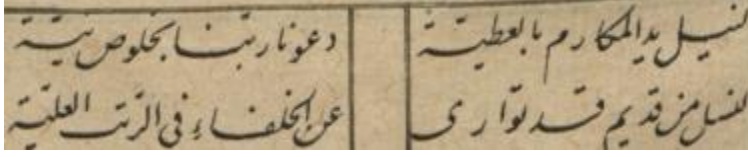 يد المكارم بالعطية دعونا ربنا بخلوص نية
من قديم قد توارى عن الخلفاء في الرتب العلية